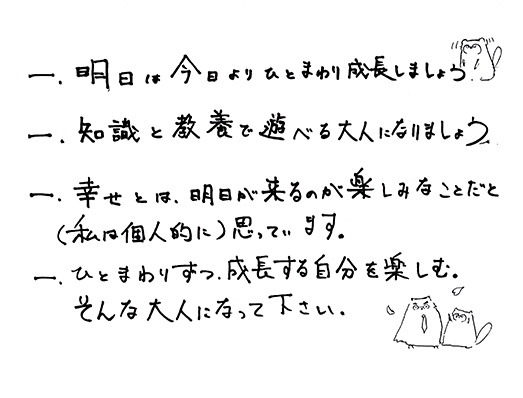 一. 明日は今日よりひとまわり成長しましょう
一. 知識と教養で遊べる大人になりましょう
一. 幸せとは、明日が来るのが楽しみなことだと
(私は個人的に)思っています。
一. ひとまわりずつ、成長する自分を楽しむ。
そんな大人になって下さい。